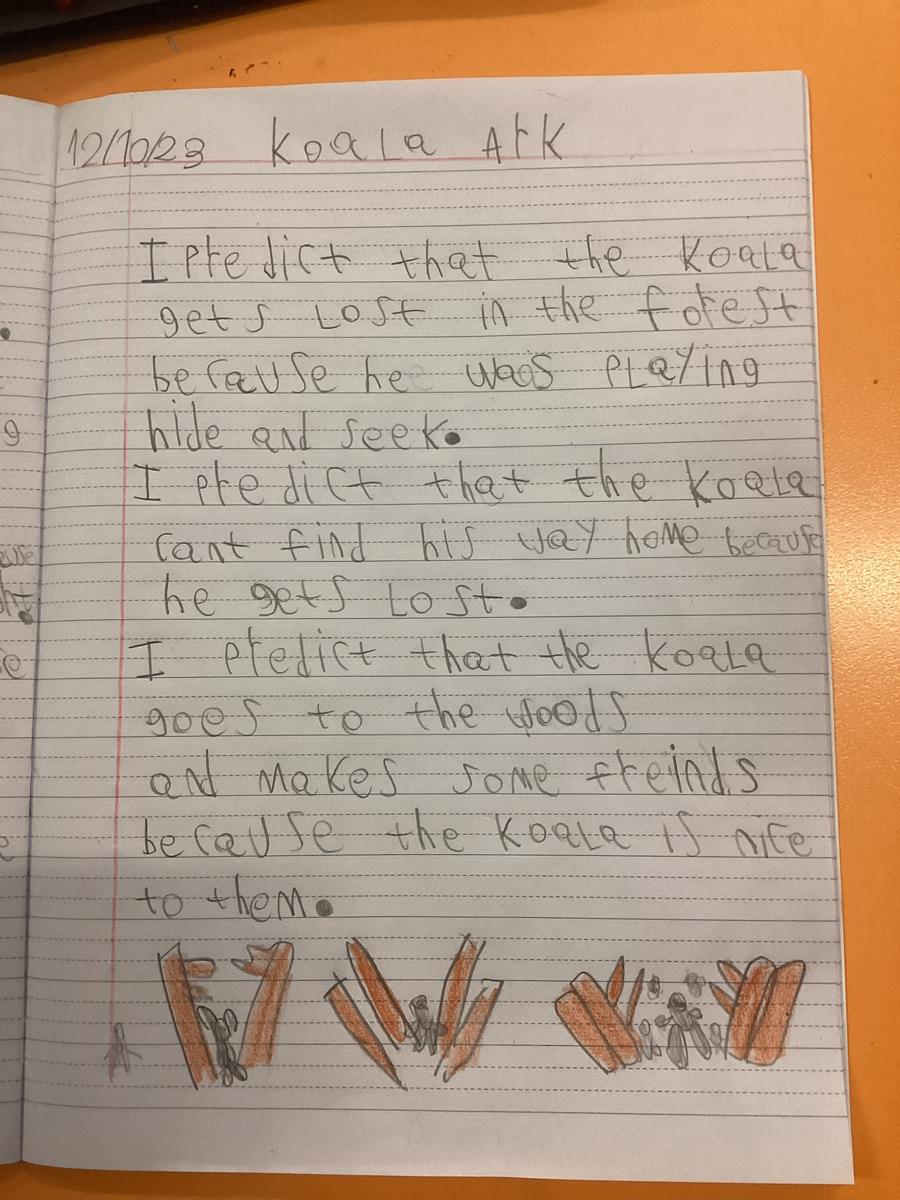 12/10/23 Koala Ark
I predict that the Koala
gets Lost in the forest
because he was PLAYing
hide and seek.
I predict that the Koala
cant find his way home because
he gets Lost.
I predict that the koala
goes to the woods
and makes some freinds
because the Koala is nice
to them.